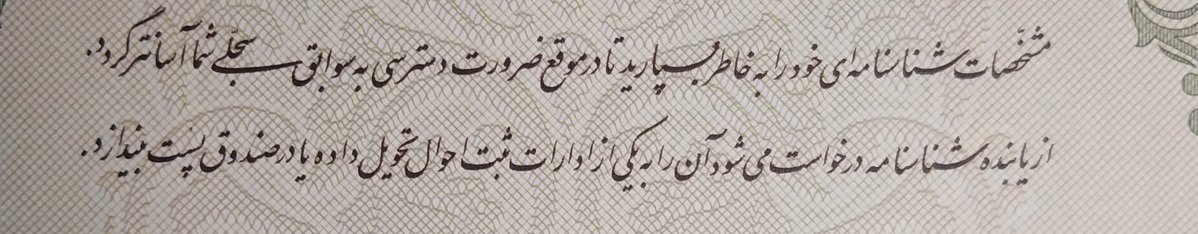 مشخّصات شناسنامه‌ای خود را به خاطر بسپارید تا در موقع ضرورت دسترسی به سوابق سجلّی شما آسانتر گردد.
از یابنده شناسنامه درخواست می شود آن را به یکی از ادارات ثبت احوال تحویل داده یا در صندوق پست بیندازد.